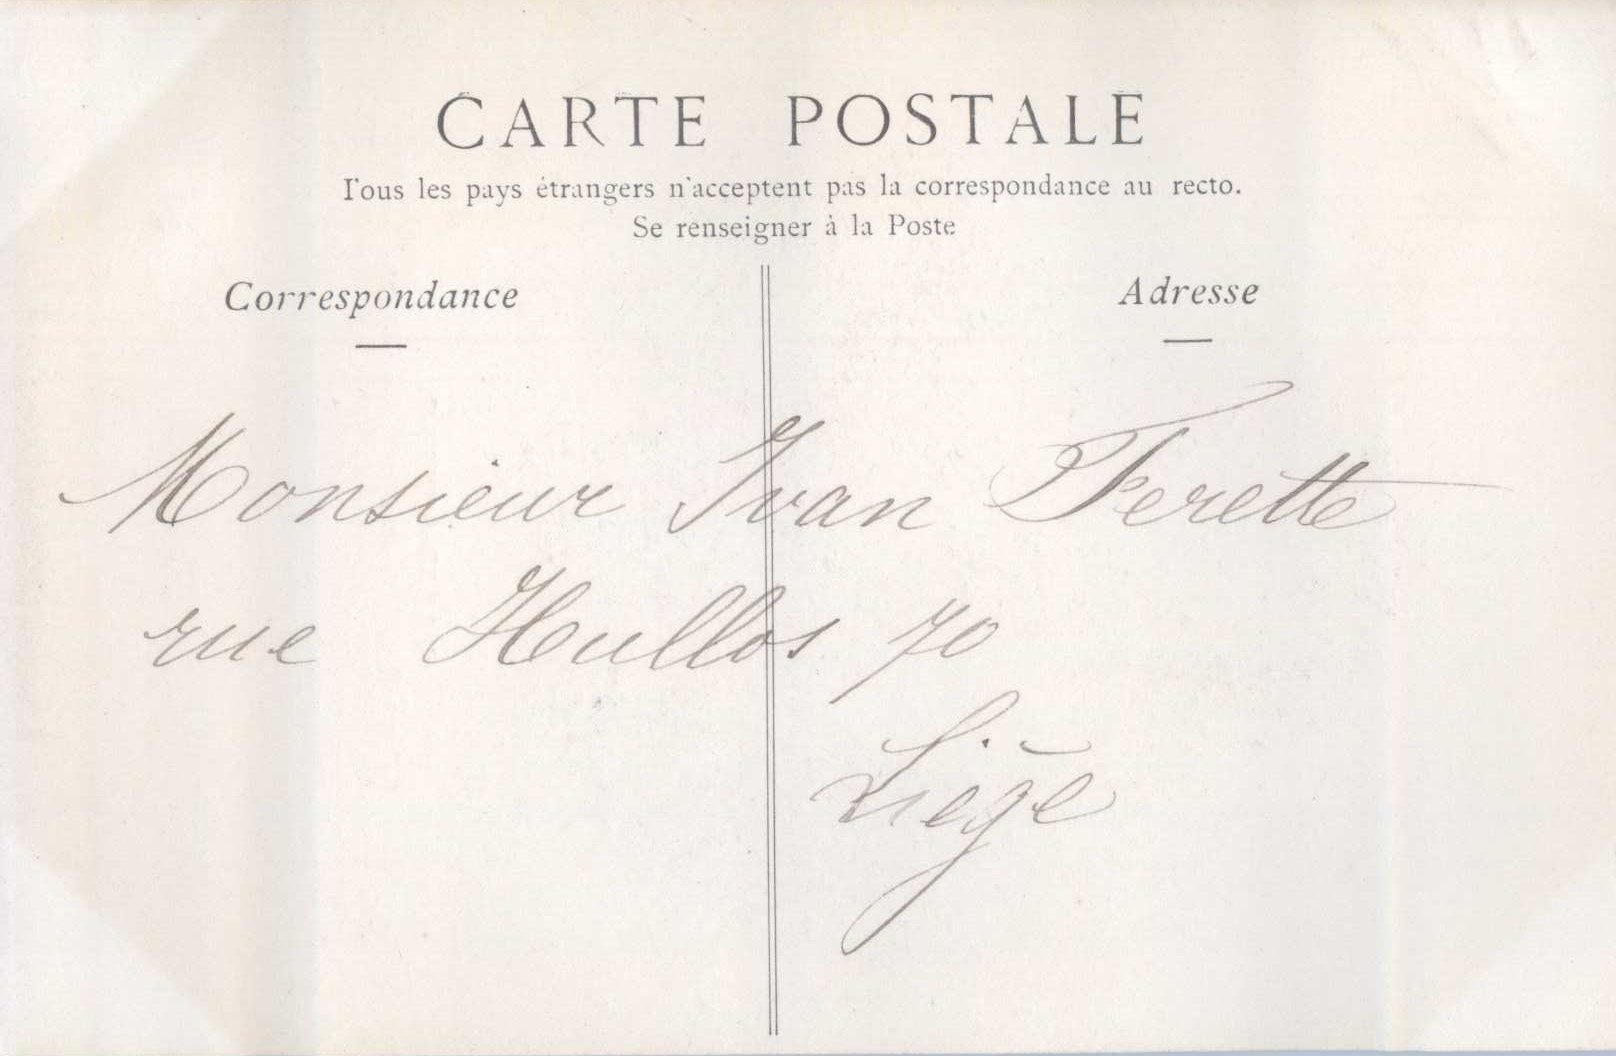 CARTE POSTALE
Tous les pays étrangers n'acceptent pas la correspondance au recto.
Se renseigner à la Poste
Correspondance
Adresse
Monsieur Ivan Ferette
rue Hullos 70
Liège